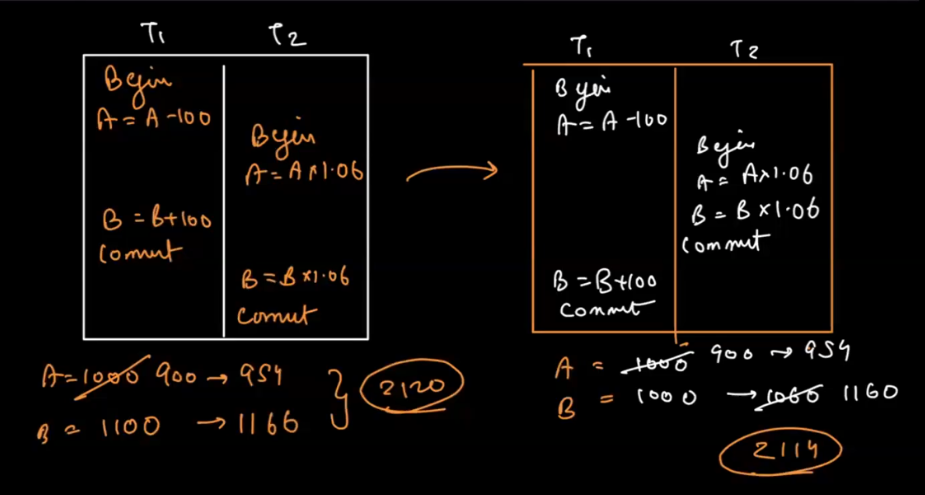 T1 T2
Begin
A = A - 100
Begin
A = A x 1.06
B = B + 100
Commit
B = B x 1.06
Commit
A = 1000 900 → 954
B = 1100 → 1166
2120
T1 T2
Begin
A = A - 100
Begin
A = A x 1.06
B = B x 1.06
Commit
B = B + 100
Commit
A = 1000 900 → 954
B = 1000 → 1060 1160
2114